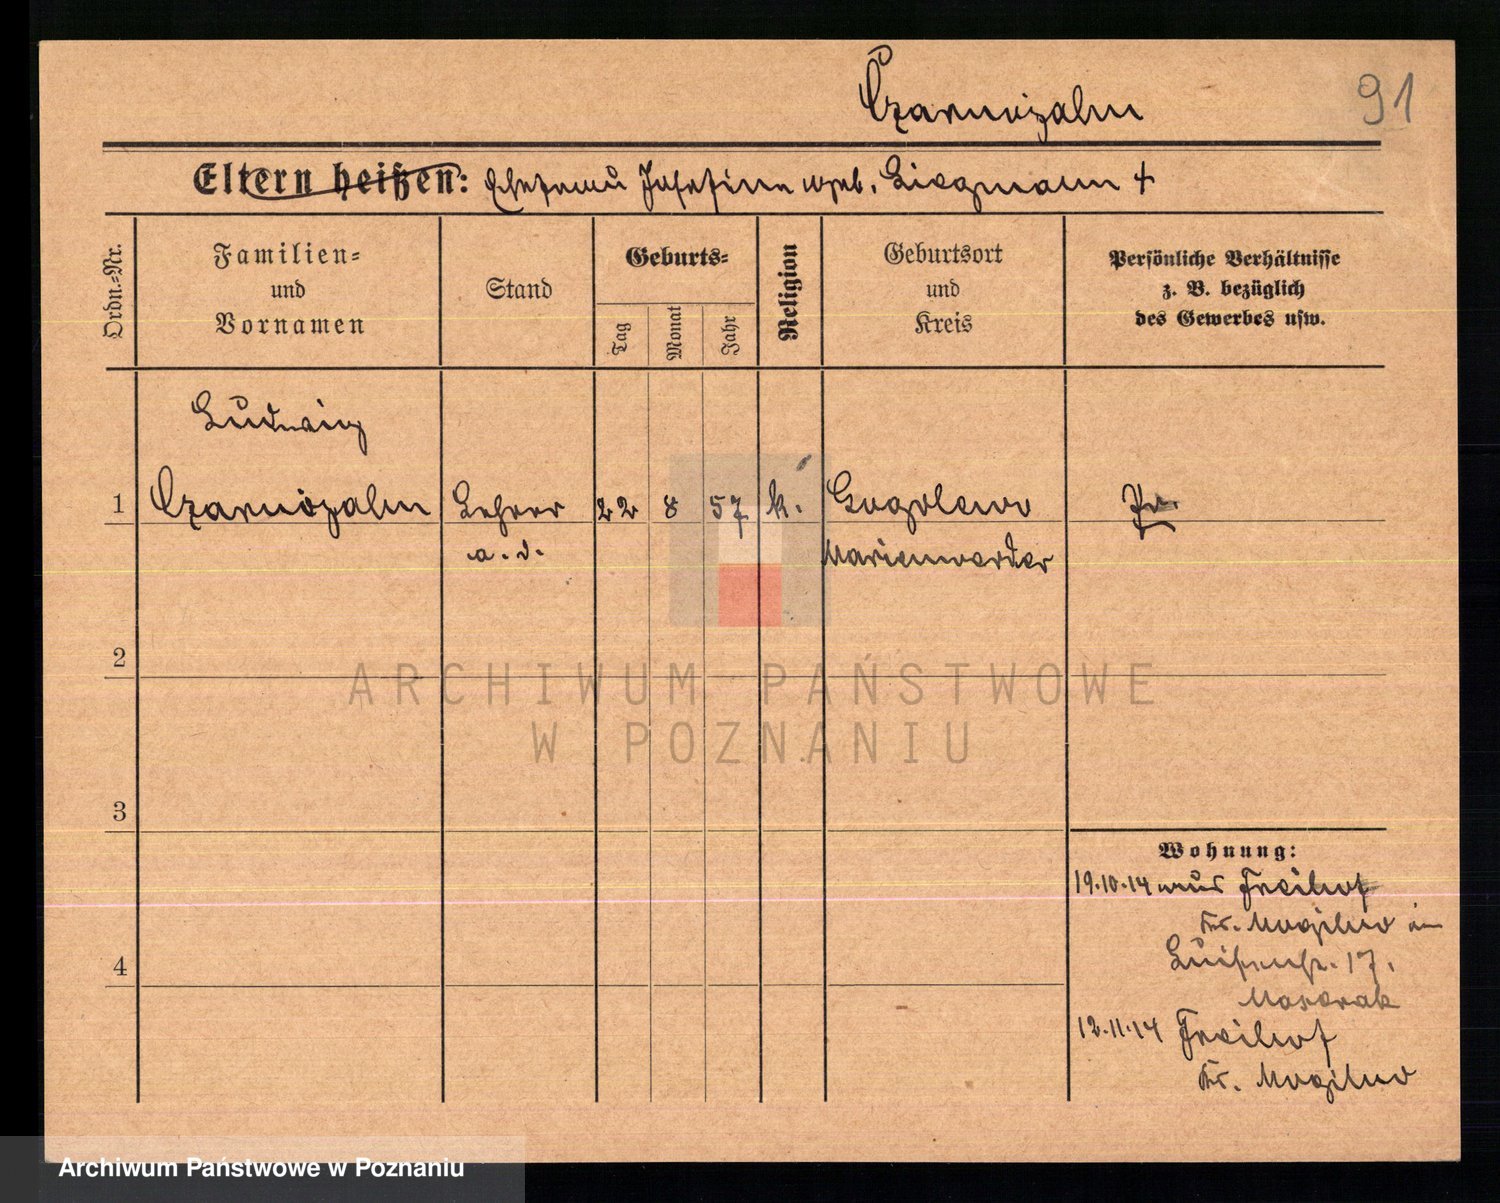 Czarnojahn
91
Eltern heißen: Ehefrau Josefine geb. Liegmann +
Ordn.-Nr.
Familien-
und
Vornamen
Stand
Geburts-
Tag
Monat
Jahr
Religion
Geburtsort
und
Kreis
Persönliche Verhältnisse
z. B. bezüglich
des Gewerbes usw.
Ludwig
1 Czarnojahn Lehrer 22 8 57 k. Gogolewo Pr.
a. D. Marienwerder
2
3
4
Wohnung:
19.10.14 aus Freihof
Kr. Mogilno in
Luisenstr. 17.
12.11.14 Freihof
Kr. Mogilno
ARCHIWUM PAŃSTWOWE
W POZNANIU
Archiwum Państwowe w Poznaniu